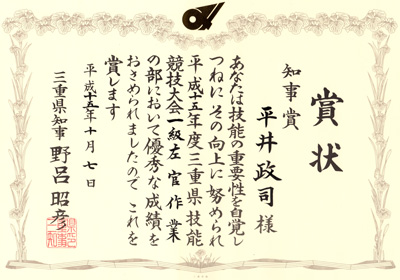 賞状
知事賞
平井政司様
あなたは技能の重要性を自覚し
つねにその向上に努められ
平成十五年度三重県技能
競技大会一級左官作業
の部において優秀な成績を
おさめられましたのでこれを
賞します
平成十五年十月七日
三重県知事 野呂昭彦